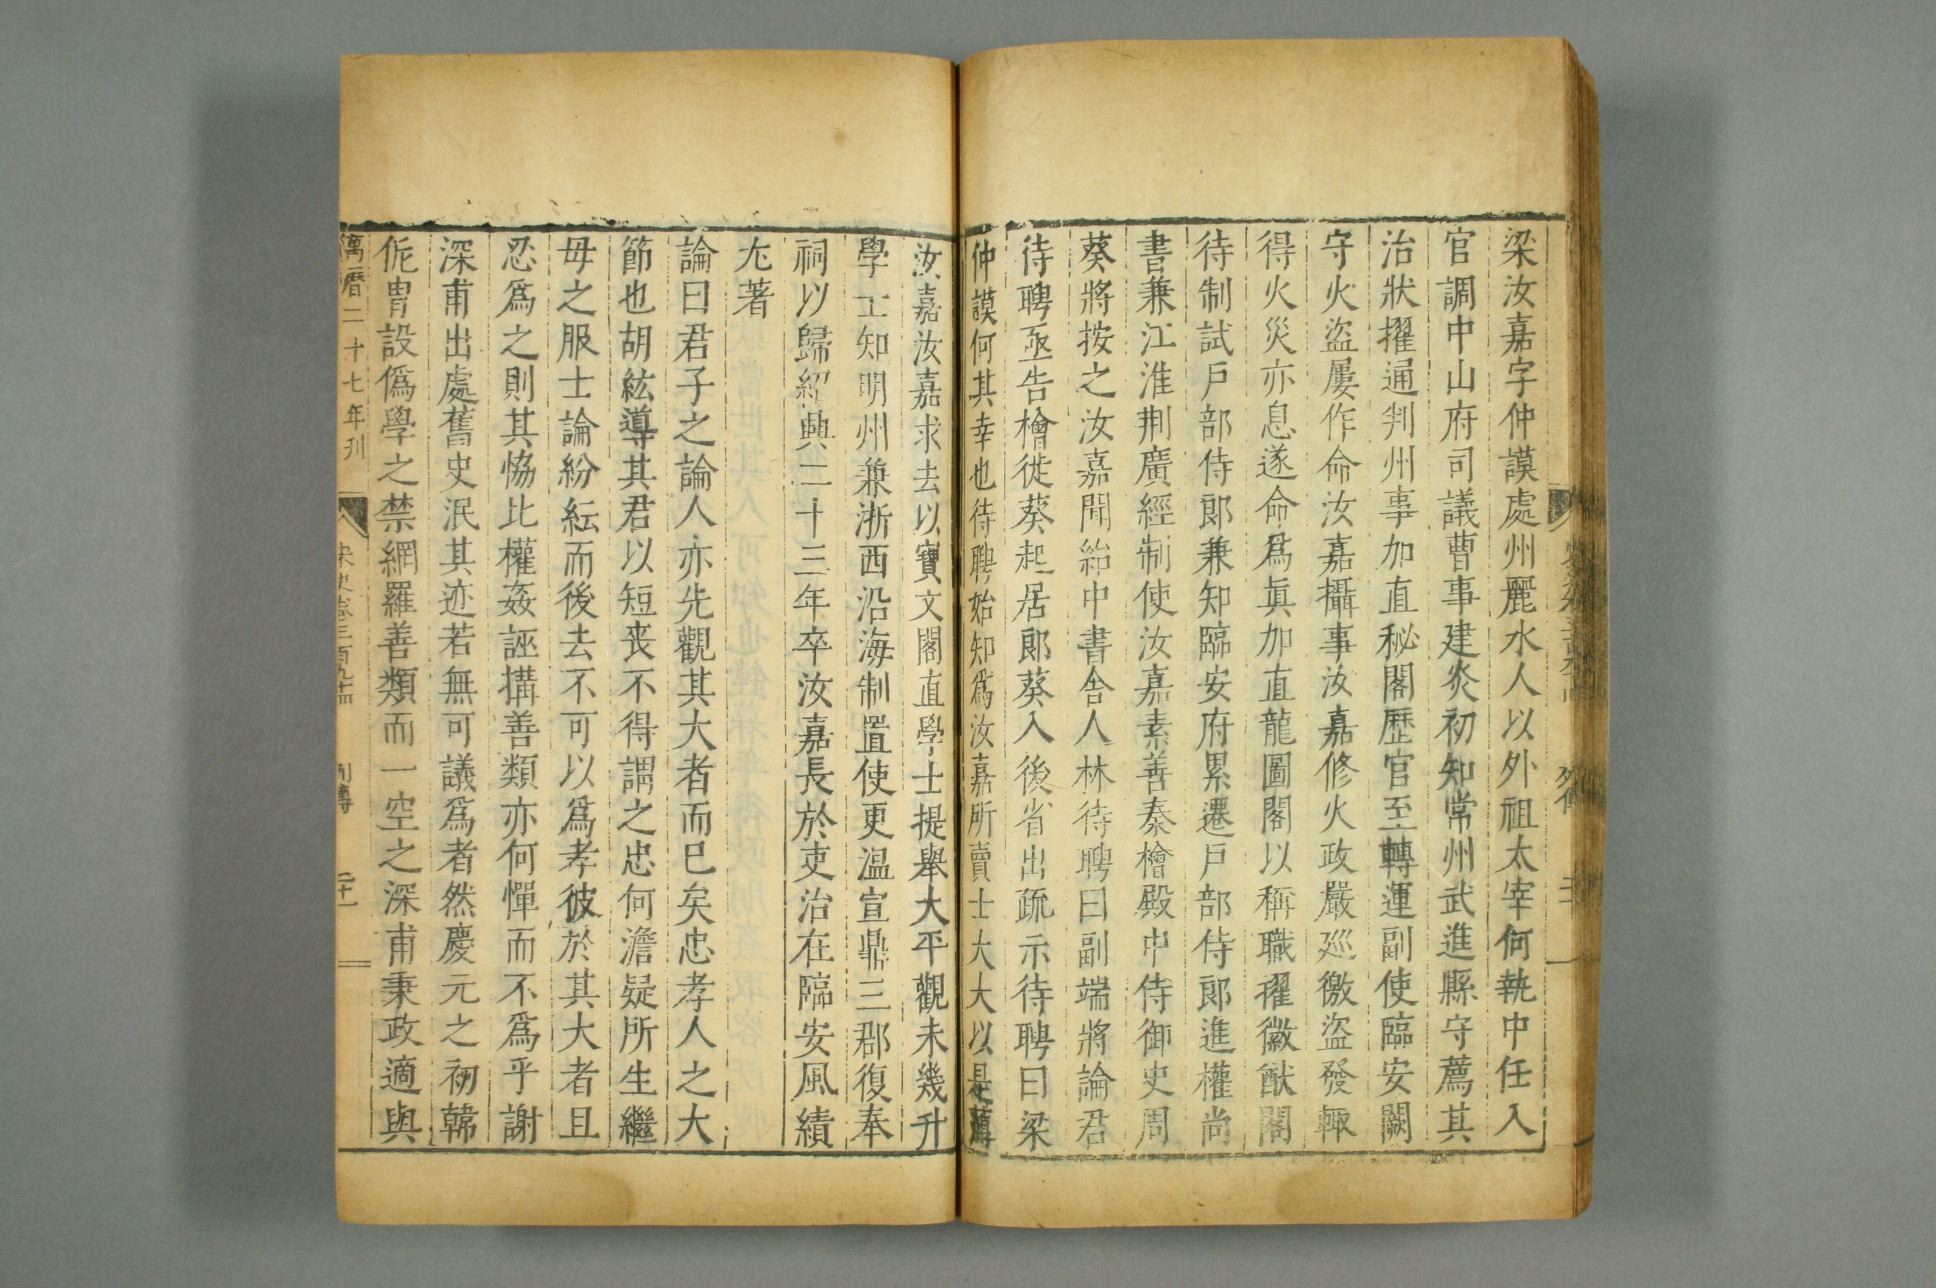 梁汝嘉字仲謨處州麗水人以外祖太宰何執中任入
官調中山府司議曹事建炎初知常州武進縣守薦其
治狀擢通判州事加直秘閣歷官至轉運副使臨安闕
守火盜屢作命汝嘉攝事汝嘉修火政嚴巡徼盜發輒
得火災亦息遂命爲眞加直龍圖閣以稱職擢徽猷閣
待制試戶部侍郎兼知臨安府累遷戶部侍郎進權尚
書兼江淮荆廣經制使汝嘉素善秦檜殿中侍御史周
葵將按之汝嘉聞紿中書舍人林待聘曰副端將論君
待聘亟告檜徙葵起居郎葵入後省出疏示待聘曰梁
仲謨何其幸也待聘始知爲汝嘉所賣士大夫以是薄
汝嘉汝嘉求去以寶文閣直學士提舉太平觀未幾升
學士知明州兼浙西沿海制置使更温宣鼎三郡復奉
祠以歸紹興二十三年卒汝嘉長於吏治在臨安風績
尤著
論曰君子之論人亦先觀其大者而已矣忠孝人之大
節也胡紘導其君以短喪不得謂之忠何澹疑所生繼
母之服士論紛紜而後去不可以爲孝彼於其大者且
忍爲之則其恊比權姦誣搆善類亦何憚而不爲乎謝
深甫出處舊史泯其迹若無可議爲者然慶元之初韓
侂冑設僞學之禁網羅善類而一空之深甫秉政適與
萬曆二十七年刊 宋史卷三百九十四 列傳 二十一